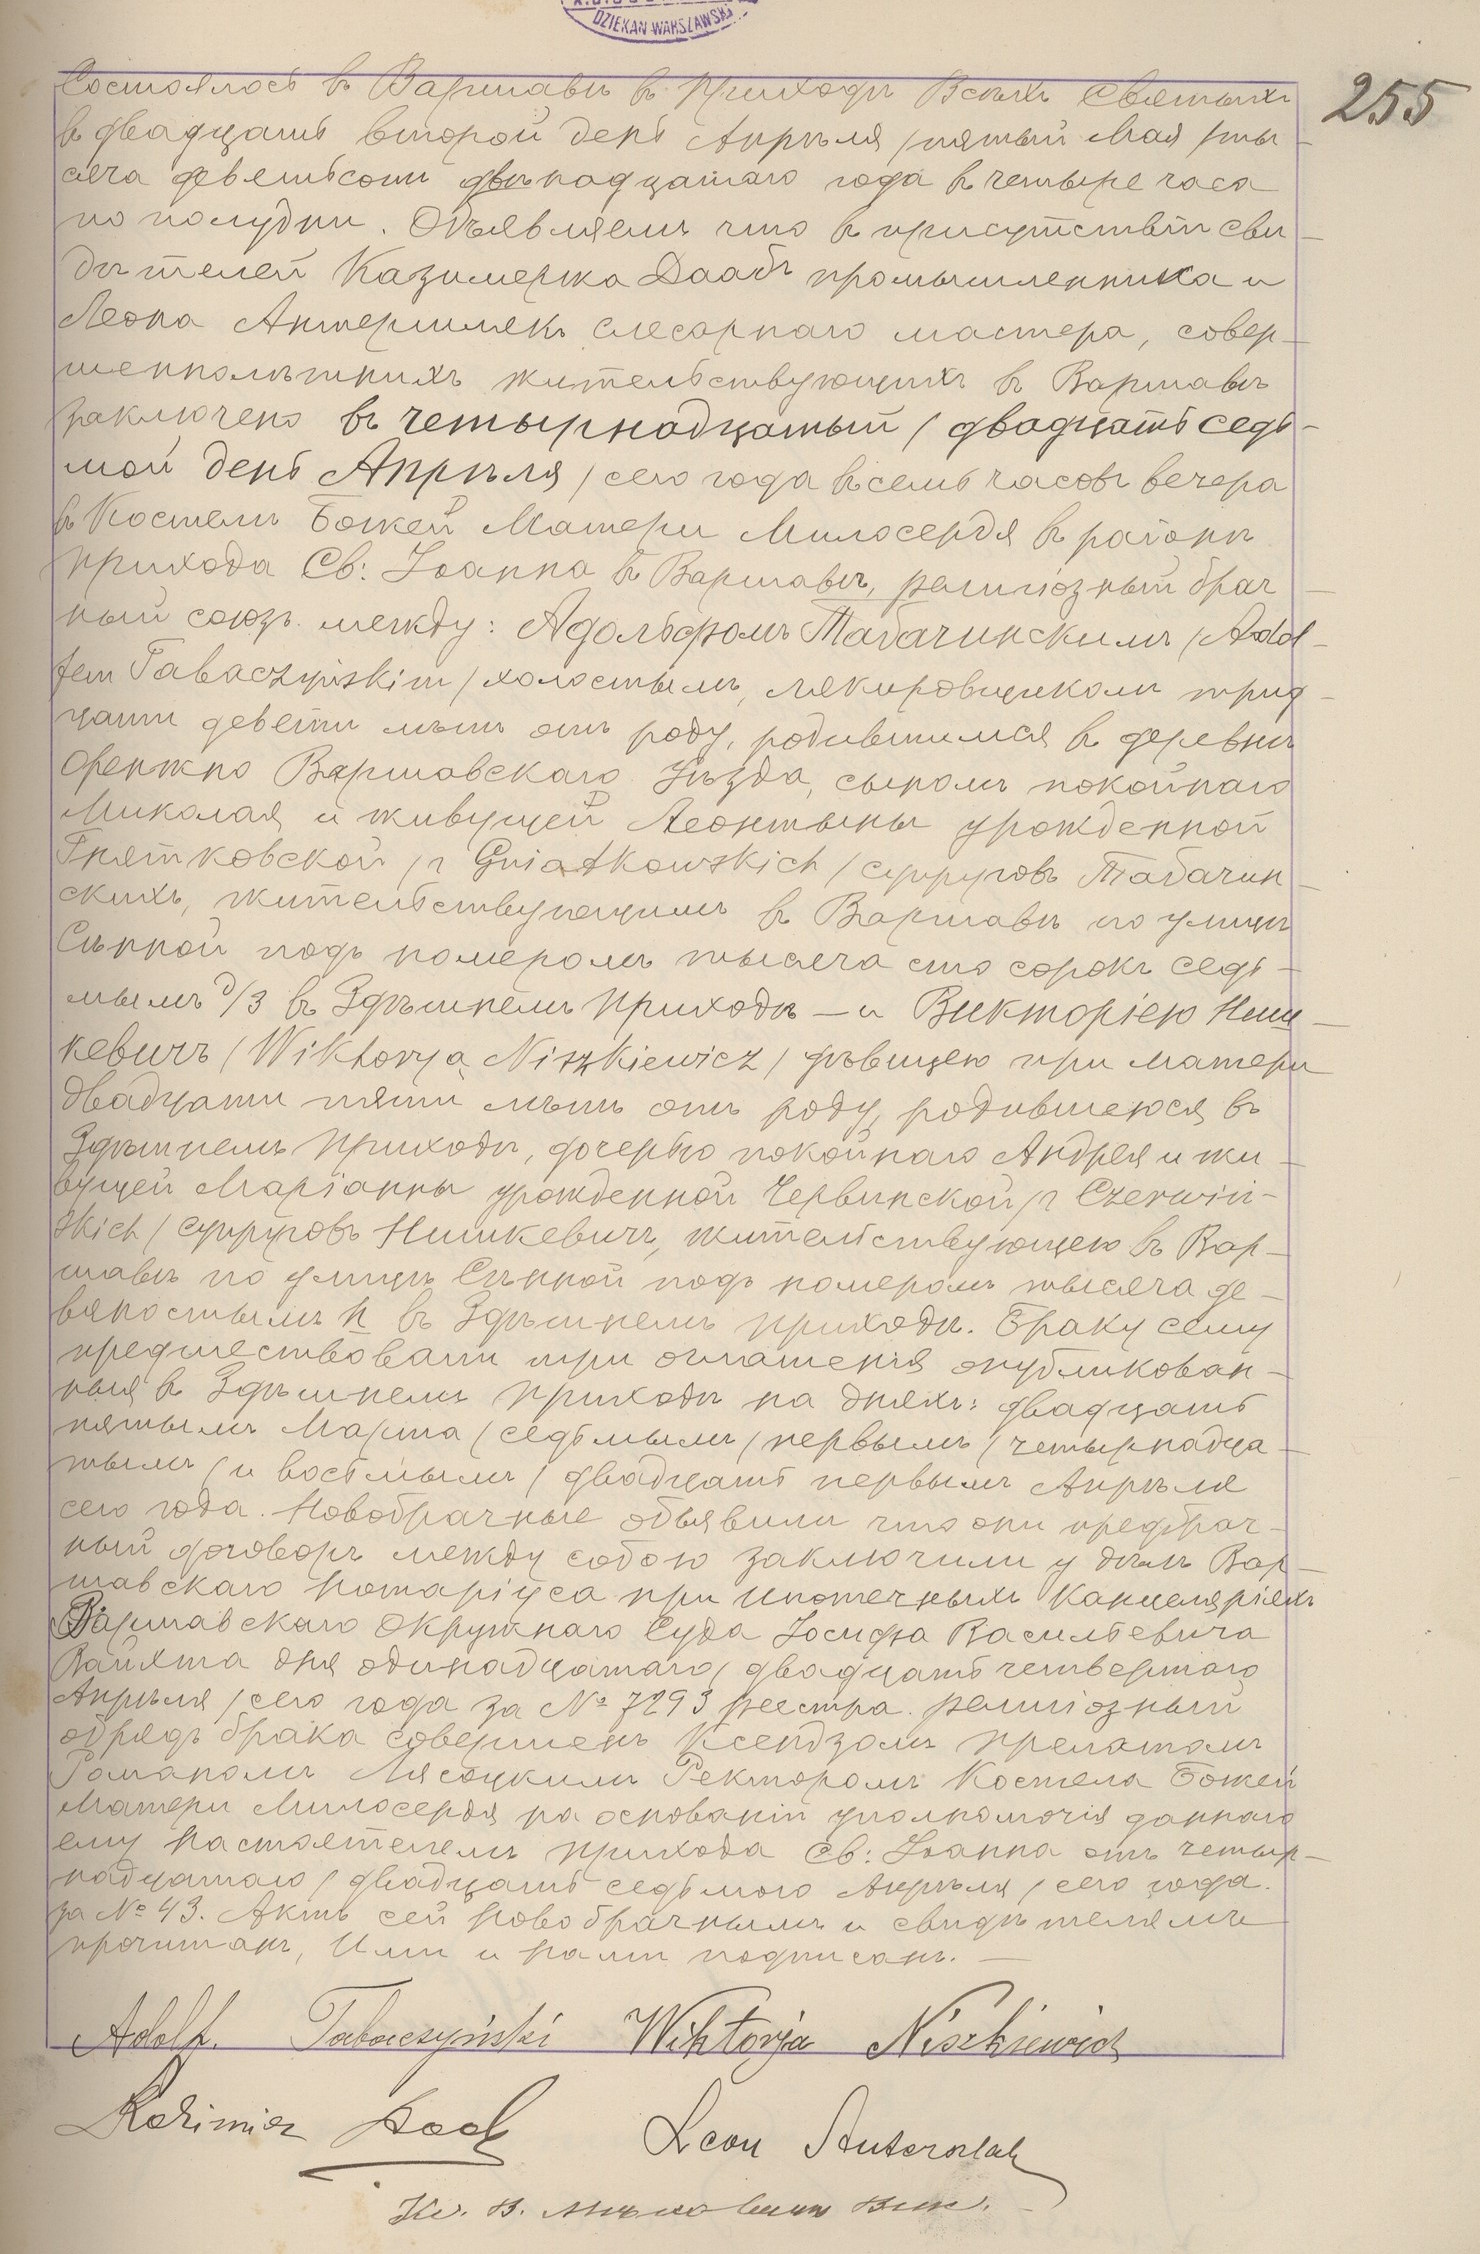 DZIEKAN WARSZAWSKI
255
Состоялось въ Варшавѣ въ приходѣ Всѣхъ Святыхъ
въ двадцать второй день Апрѣля /пятый Мая/ ты-
сяча девятьсотъ двѣнадцатаго года въ четыре часа
по полудни. Объявляемъ что въ присутствіи сви-
дѣтелей Казимержа Дааб промышленника и
Леона Антершлякъ слесарнаго мастера, совер-
шеннолѣтнихъ жительствующихъ въ Варшавѣ
заключенъ въ четырнадцатый /двадцать седь-
мой день Апрѣля/ сего года въ семь часовъ вечера
въ Костелѣ Божей Матери Милосердя въ районѣ
прихода Св: Іоанна въ Варшавѣ, религіозный брач-
ный союзъ между: Адольфомъ Табачинскимъ /Adol-
fem Tabaczyńskim/ холостымъ, лякировщикомъ трид-
цати девети лѣтъ отъ роду, родившимся въ деревнѣ
Оренжно Варшавскаго Уѣзда, сыномъ покойнаго
Миколая и живущей Леонтыны урожденной
Гнятковской /z Gniatkowskich/ супруговъ Табачин-
скихъ, жительствующимъ въ Варшавѣ по улицѣ
Сѣнной подъ номеромъ тысяча сто сорокъ седь-
мымъ д/3 въ Здѣшнемъ приходѣ — и Викторіею Ниш-
кевичъ /Wiktoryą Niszkiewicz/ дѣвицею при матери
двадцати пяти лѣтъ отъ роду, родившеюся въ
Здѣшнемъ приходѣ, дочерью покойнаго Андрея и жи-
вущей Маріанны урожденной Червинской /z Czerwiń-
skich/ супруговъ Нишкевичъ, жительствующею въ Вар-
шавѣ по улицѣ Сѣнной подъ номеромъ тысяча де-
вяностымъ н въ Здѣшнемъ приходѣ. Браку сему
предшествовали три оглашенія опубликован-
ныя въ Здѣшнемъ приходѣ на дняхъ: двадцать
пятымъ Марта /седьмымъ/ первымъ /четырнадца-
тымъ/ и восьмымъ /двадцать первымъ Апрѣля
сего года. Новобрачные объявили что они предбрач-
ный договоръ между собою заключили у дѣлъ Вар-
шавскаго Нотаріуса при Ипотечныхъ Канцеляріяхъ
Варшавскаго Окружнаго Суда Іосифа Васильевича
дня одинадцатаго/двадцать четвертаго
Апрѣля/ сего года за № 7293 реестра. Религіозный
обрядъ брака совершенъ Ксендзомъ прелатомъ
Романомъ Лясоцкимъ Ректоромъ Костела Божей
Матери Милосердя на основаніи уполномочія даннаго
ему Настоятелемъ прихода Св: Іоанна отъ четыр-
надцатаго /двадцать седьмого Апрѣля/ сего года.
за № 43. Актъ сей Новобрачнымъ и свидѣтелямъ
прочитанъ, Ими и нами подписанъ. —
Adolf. Tabaczyński Wiktorja Niszkiewicz
Kazimierz Daab Leon Anterszlak
Кс. В. Вик.